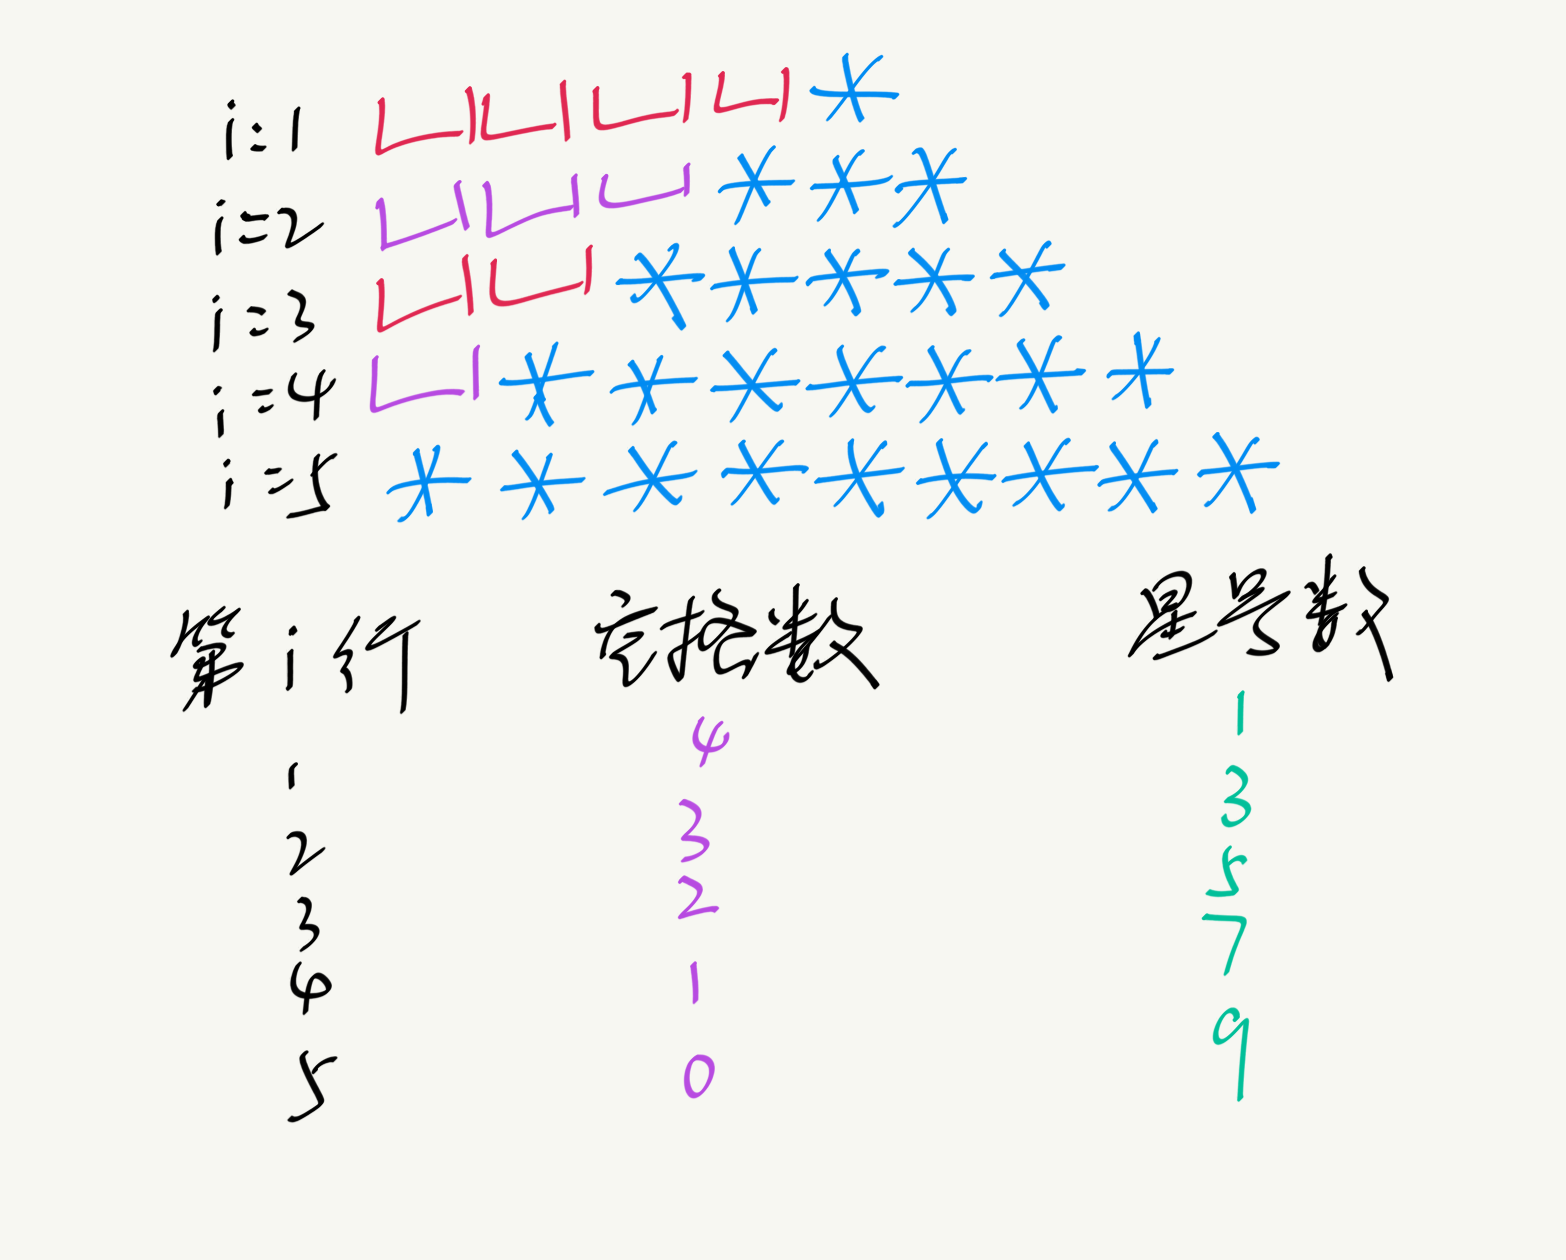 i=1 ␣␣␣␣*
i=2 ␣␣␣***
i=3 ␣␣*****
i=4 ␣*******
i=5 *********
第i行 空格数 星号数
1 4 1
2 3 3
3 2 5
4 1 7
5 0 9